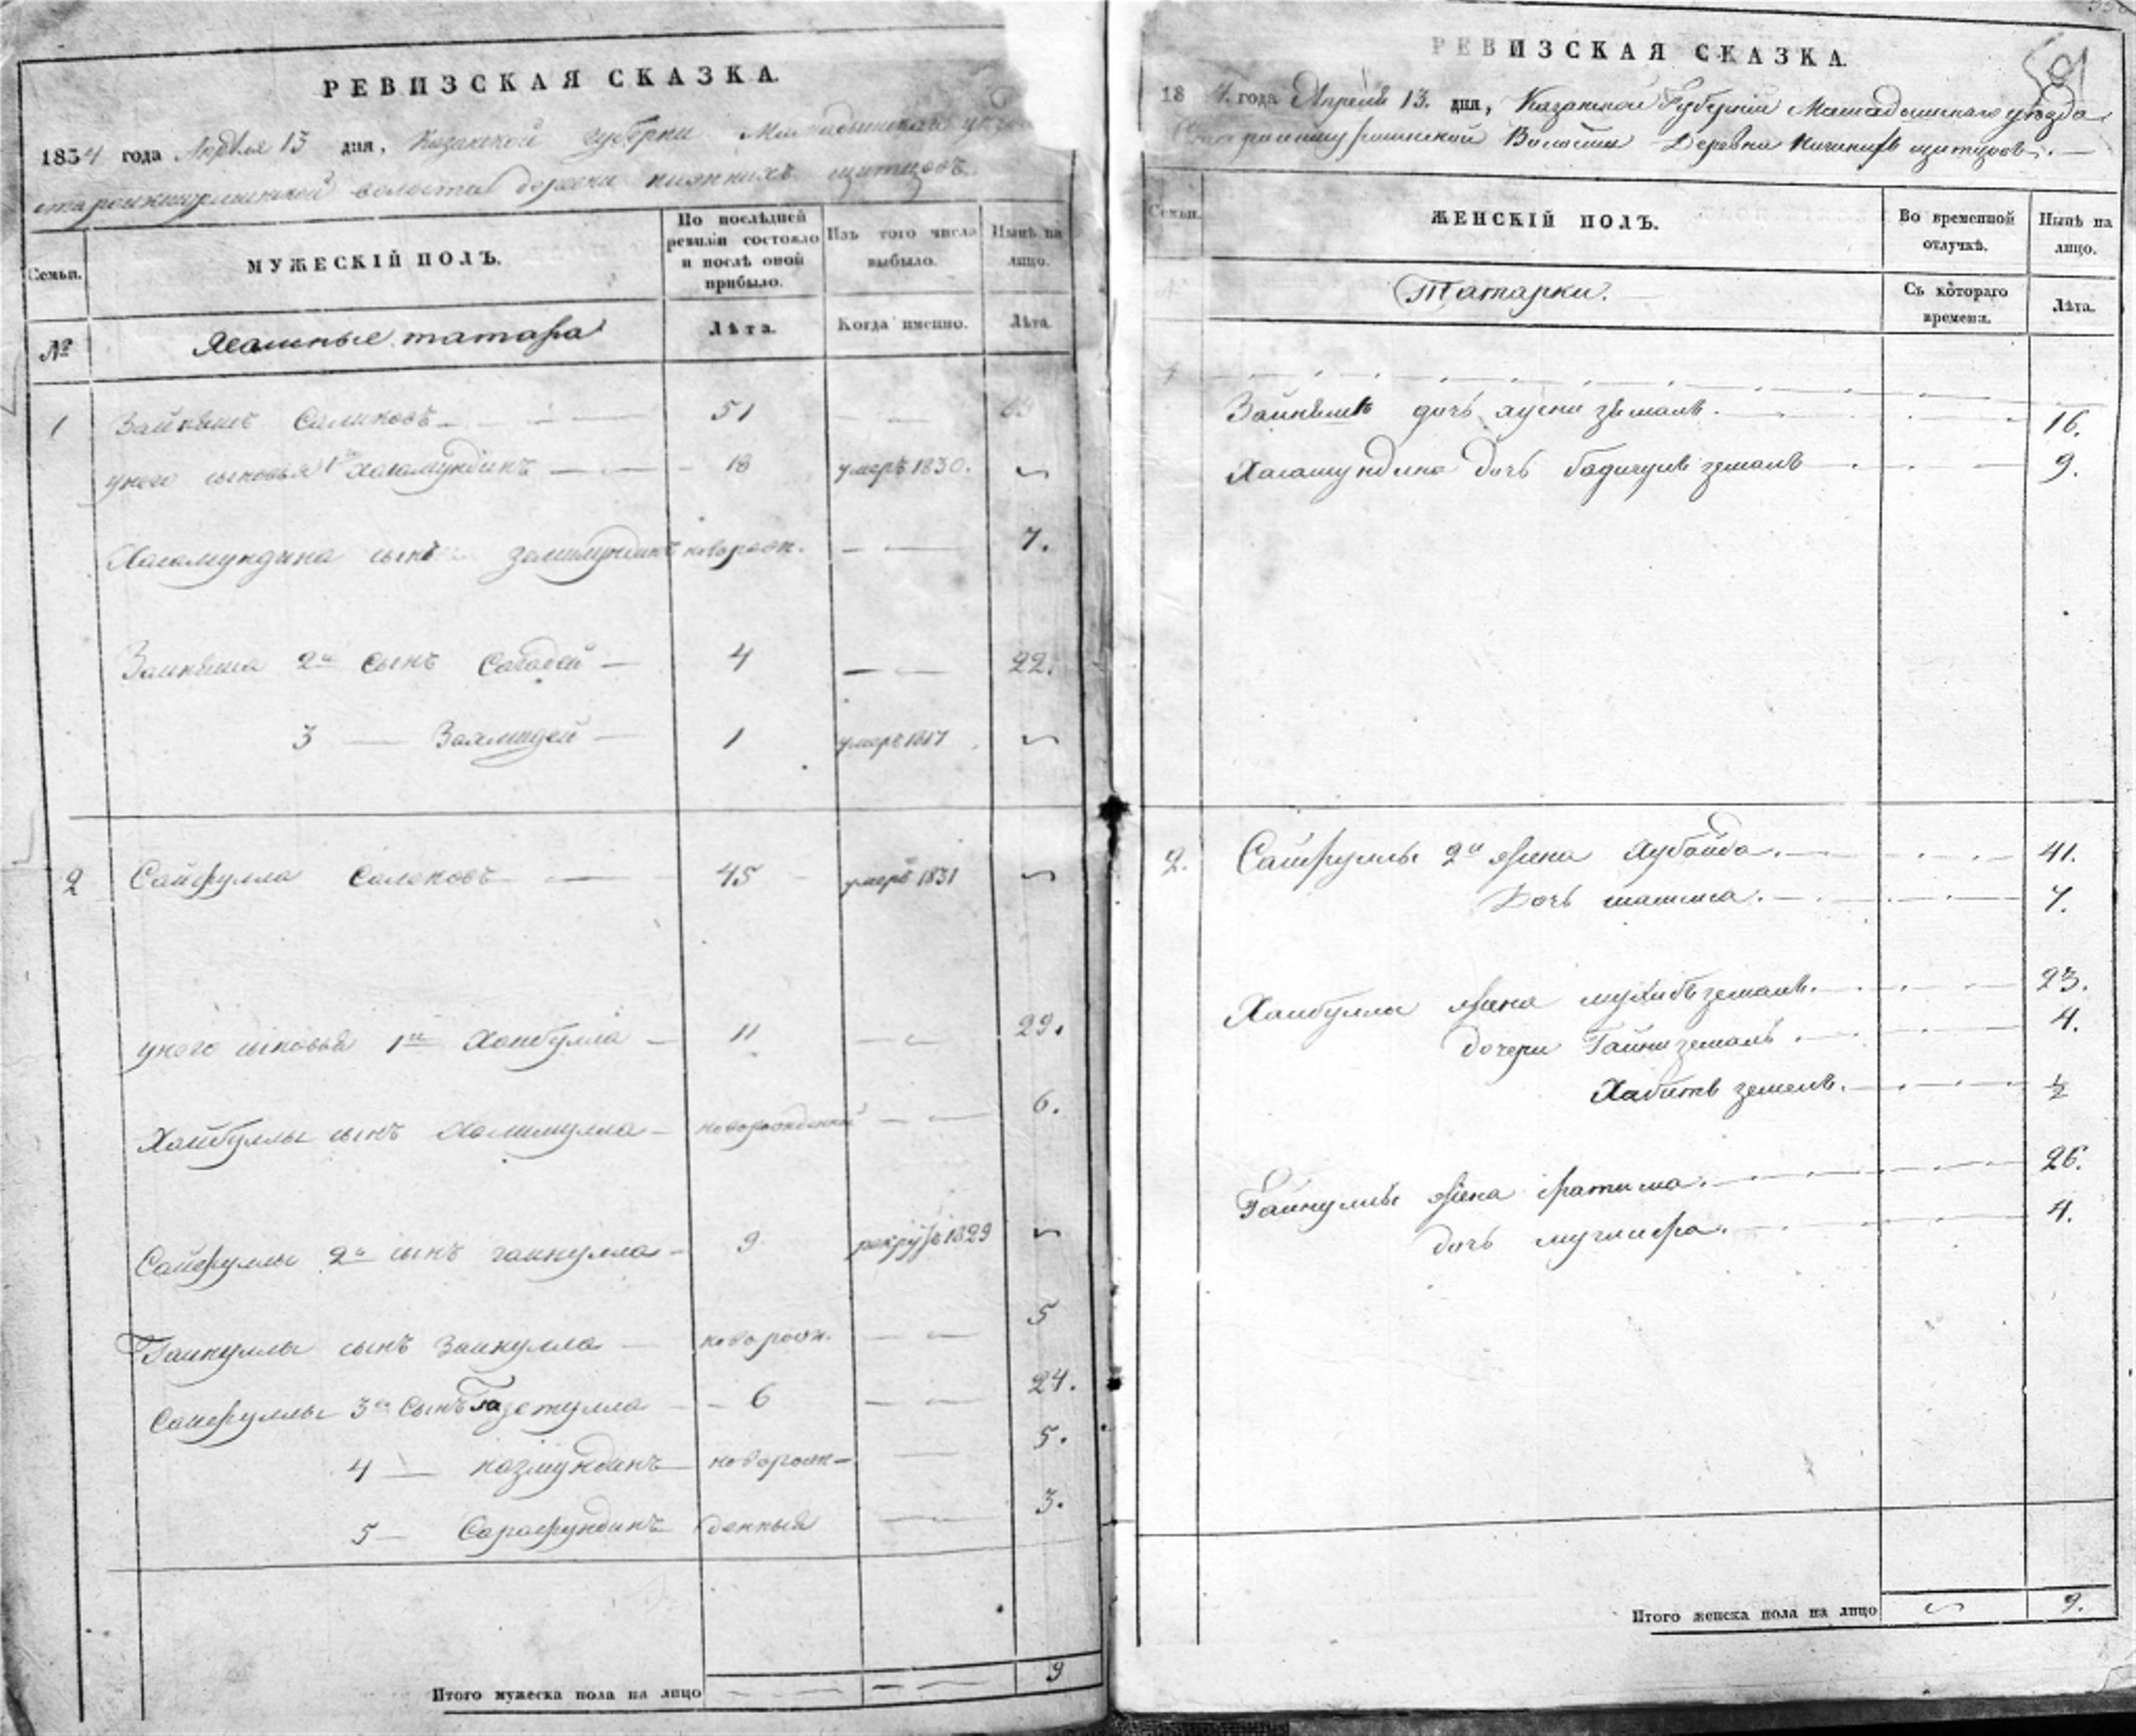 РЕВИЗСКАЯ СКАЗКА.
1834 года Апреля 13 дня, Казанской губернии Мамадышскаго
волости деревни нижнихъ шитцовъ
Семьи.
МУЖЕСКІЙ ПОЛЪ.
По послѣдней ревизіи состояло и послѣ оной прибыло.
Изъ того числа выбыло.
Нынѣ на лицо.
№
Ясашные татара
Лѣта.
Когда именно.
Лѣта.
1 Заикѣшъ Салиховъ 51
у него сыновья 1й Хисамундинъ 18 умеръ 1830.
Хисамундина сынъ новорож. 7.
Заикѣша 2й сынъ Сагадей 4 22.
3 1 умеръ 1817
2 Сайфулла Салиховъ 45 умеръ 1831
у него сыновья 1й Хаибулла 11 29.
Хаибуллы сынъ Халимулла новорожденный 6.
Сайфуллы 2й сынъ гаинулла 9 рекрутъ 1829
Гаинуллы сынъ Заинулла новорож. 5
Сайфуллы 3й сынъ Газетулла 6 24.
4 назмундинъ новорож- 5.
5 Сарафундинъ денныя 3.
Итого мужеска пола на лицо 9
РЕВИЗСКАЯ СКАЗКА.
18 4. года Апреля 13. дня, Казанской Губерніи Мамадышскаго уѣзда
Волости Деревни Нижнихъ шитцовъ.
Семьи.
ЖЕНСКІЙ ПОЛЪ.
Во временной отлучкѣ.
Нынѣ на лицо.
Татарки.
Съ котораго времени.
Лѣта.
1
Заикѣша дочь хусни земалъ. 16.
Хисамундина дочь бадигулъ земалъ 9.
2. Сайфуллы 2й жена Хубайда. 41.
Дочь 7.
Хаибуллы жена мухибъ земалъ. 23.
дочери Гайни земалъ. 4.
Хабитъ земалъ. ½
Гаинуллы жена фатима. 26.
дочь муглифа. 4.
Итого женска пола на лицо 9.